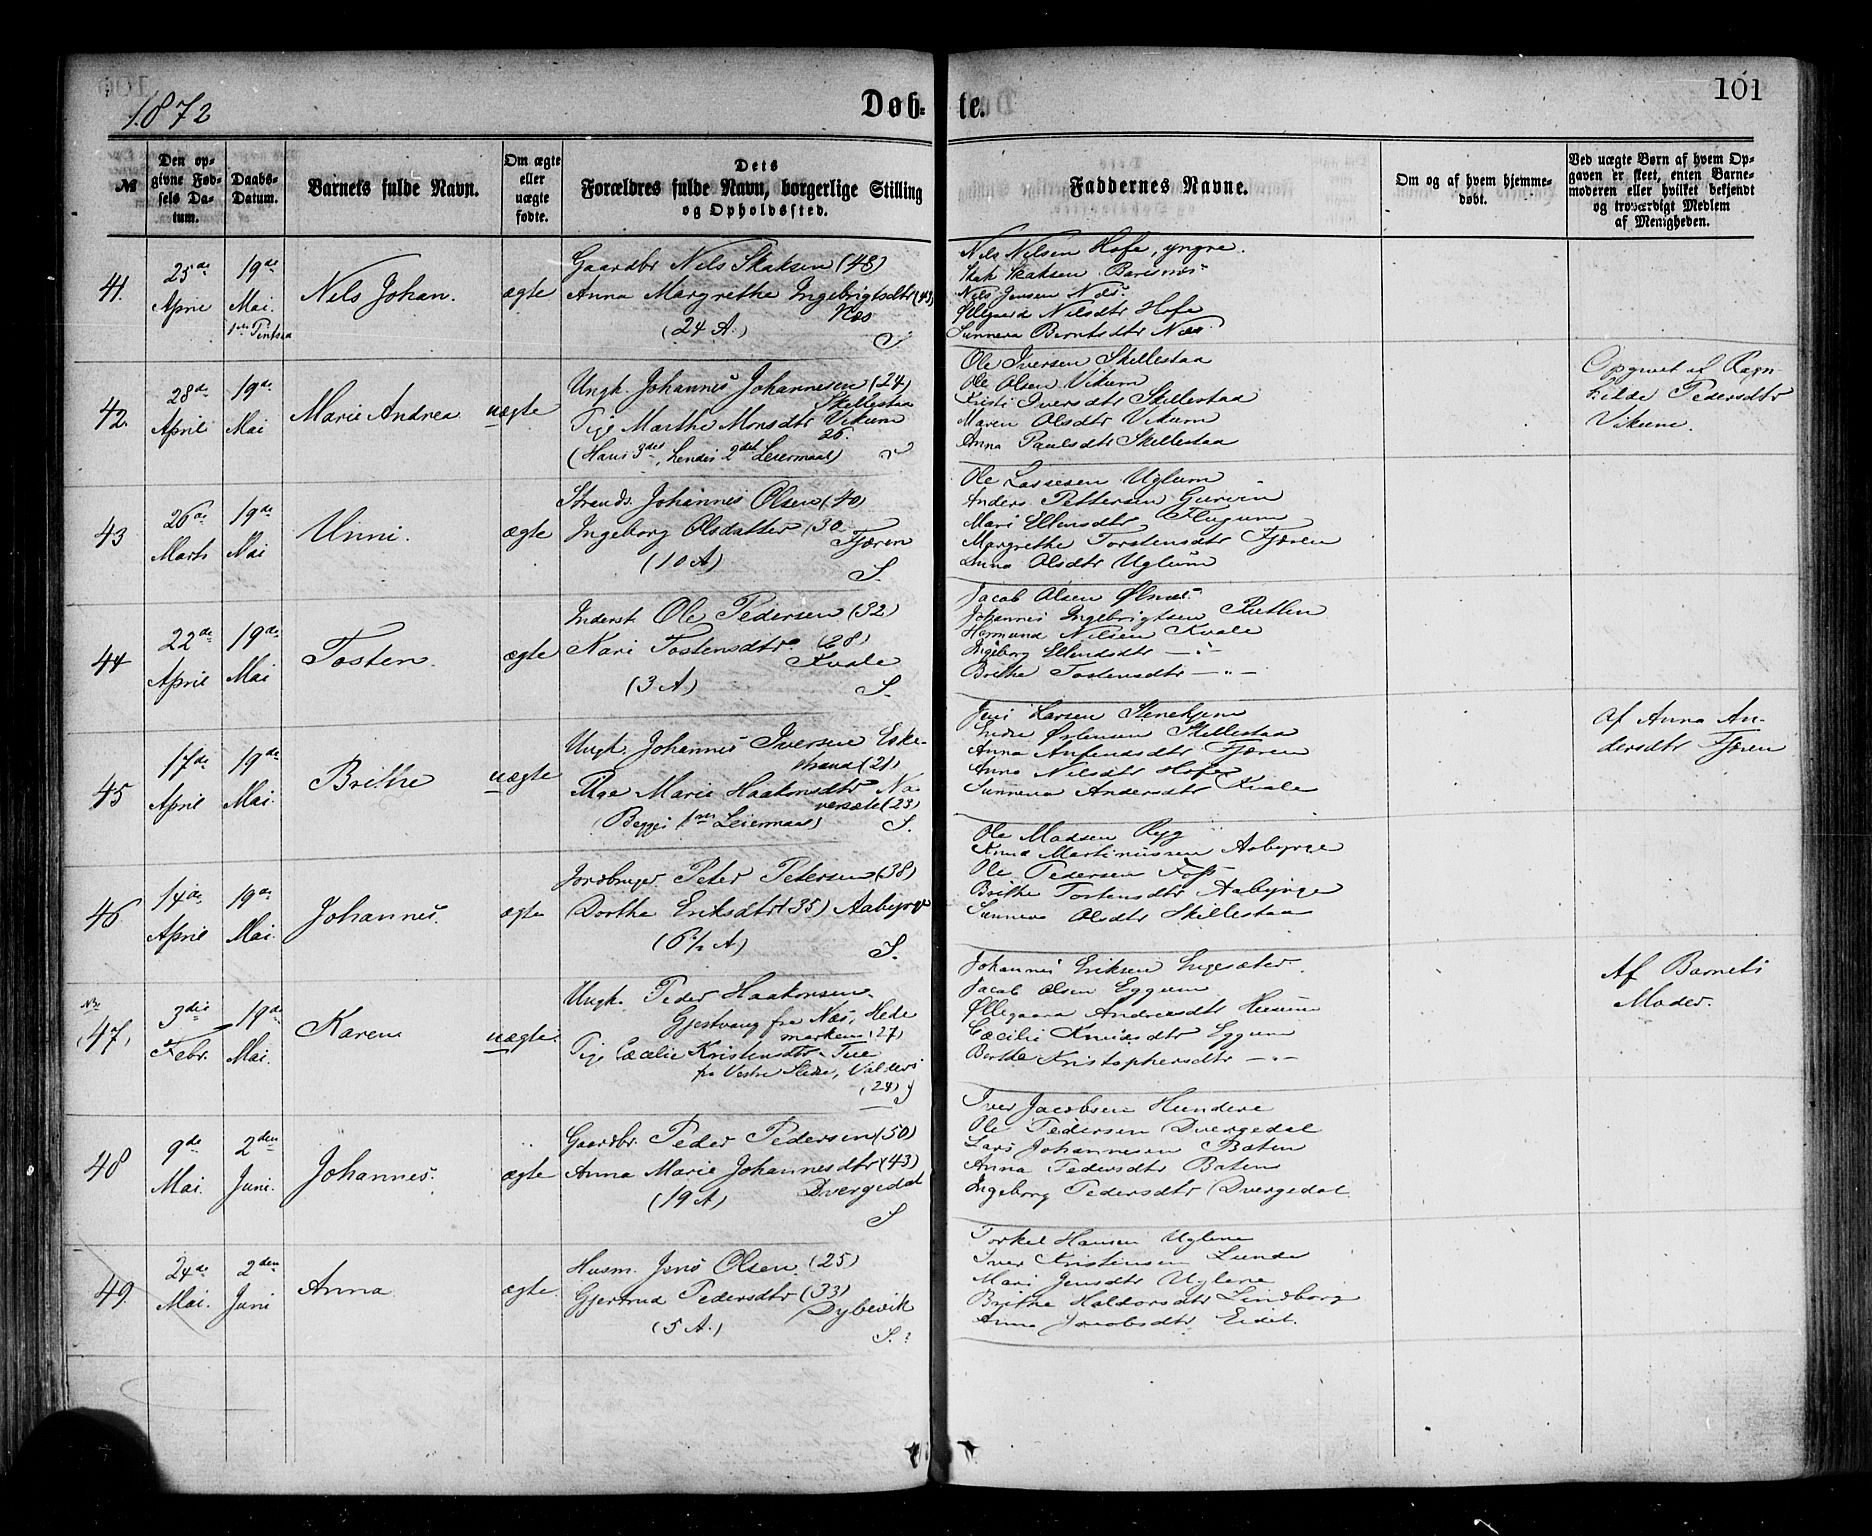 1872
Døb-
te.
101
№
Den opgivne Fødsels Datum.
Daabs-Datum.
Barnets fulde Navn.
Om ægte eller uægte fødte.
Dets Forældres fulde Navn, borgerlige Stilling og Opholdssted.
Faddernes Navne.
Om og af hvem hjemmedøbt.
Ved uægte Børn af hvem Opgaven er skeet, enten Barnemoderen eller hvilket bekjendt og troværdigt Medlem af Menigheden.
41.
25de April
19de Mai.
1ste Pintsed
Nils Johan.
ægte
Gaardbr Nils Skaksen (48)
Anna Margrethe Ingebrigtsdtr (43)
Næs
(24 A.)
S
Nils Nilsen Hofe, yngre.
Skak Skaksen
Nils Jensen Næs.
Øllegaard Nilsdtr Hofe
Sunneva Berntsdtr Næs.
42.
28de April
19de Mai
Marie Andrea
uægte
Ungk. Johannes Johannesen (24)
Skillestaa
Pige Marthe Monsdtr Vikum
26.
(Hans 3die, hendes 2det Leiermaal)
Ole Iversen Skillestaa
Ole Olsen Vikum
Kristi Iversdtr Skillestaa
Maren Olsdtr Vikum
Anna Paulsdtr Skillestaa
Opgivet af Ragnhilde Pedersdtr Vikum.
43
26de Marts
19de Mai
Unni.
ægte
Strands. Johannes Olsen (40)
Ingeborg Olsdatter (30
Fjæren
(10 A)
S.
Ole Lassesen Uglum
Anders Pettersen Gurvin
Mari Ellensdtr Flugum
Margrethe Torstensdtr Fjæren
Anna Olsdtr Uglum
44
22de April
19de Mai
Tosten.
ægte
Inderst Ole Pedersen (32)
Kari Tostensdtr (28)
Kvale
(3 A)
S.
Jacob Olsen Ølnæs
Johannes Ingebrigtsen Rutlin
Hermund Nilsen Kvale
Ingeborg Ellendsdtr —"—
Brithe Tostensdtr —"—
45
17de April
19de Mai.
Brithe
uægte
Ungk. Johannes Iversen Eskestrand (21)
Pige Marie Haakonsdtr Naversete (23)
(Begges 1ste Leiermaal)
S.
Jens Larsen Stenehjem
Endre Skillestaa
Anna Anfindsdtr Fjæren
Anna Nilsdtr Hofe
Sunneva Andersdtr Kvale
af Anna Andersdtr Fjæren
46
14de April
19de Mai.
Johannes.
ægte
Jordbruger Peter Petersen (38)
Dorthe Eriksdtr (35) Aabyrge
(6½ A)
S.
Ole Madsen Rygg
Anna Martinussen Aabyrge
Ole Pedersen Foss
Brithe Tostensdtr Aabyrge
Sunneva Olsdtr Skillestaa
NB.
(47)
3die Febr.
19de Mai.
Karen
uægte.
Ungk. Peder Haakonsen
Gjestvang fra Næs, Hedemarken (27)
Pige Cæcilie Kristensdtr Tue
fra Vestre Slidre, Valders
(24) S
Johannes Eriksen Engesæter.
Jacob Olsen Eggum
Øllegaard Andreasdtr Husum
Cæcilie Knudsdtr Eggum
Berthe Kristophersdtr —"—
Af Barnets Moder.
48
9de Mai.
2den Juni.
Johannes.
ægte
Gaardbr. Peder Pedersen (50)
Anna Marie Johannesdtr (43)
Dvergedal
(19 A)
S
Iver Jacobsen Hundere
Ole Pedersen Dvergedal
Lars Johannesen Baten
Anna Pedersdtr Baten
Ingeborg Pedersdtr Dvergedal.
49.
24de Mai.
2den Juni
Anna
ægte.
Husm. Jens Olsen. (25)
Gjertrud Pedersdtr (33)
Dybevik
(5 A.)
S.
Torkel Hansen Uglene
Iver Kristensen Lunde
Mari Jensdtr Uglene
Brithe Haldorsdtr Lindborg
Anna Jacobsdtr Eidet.